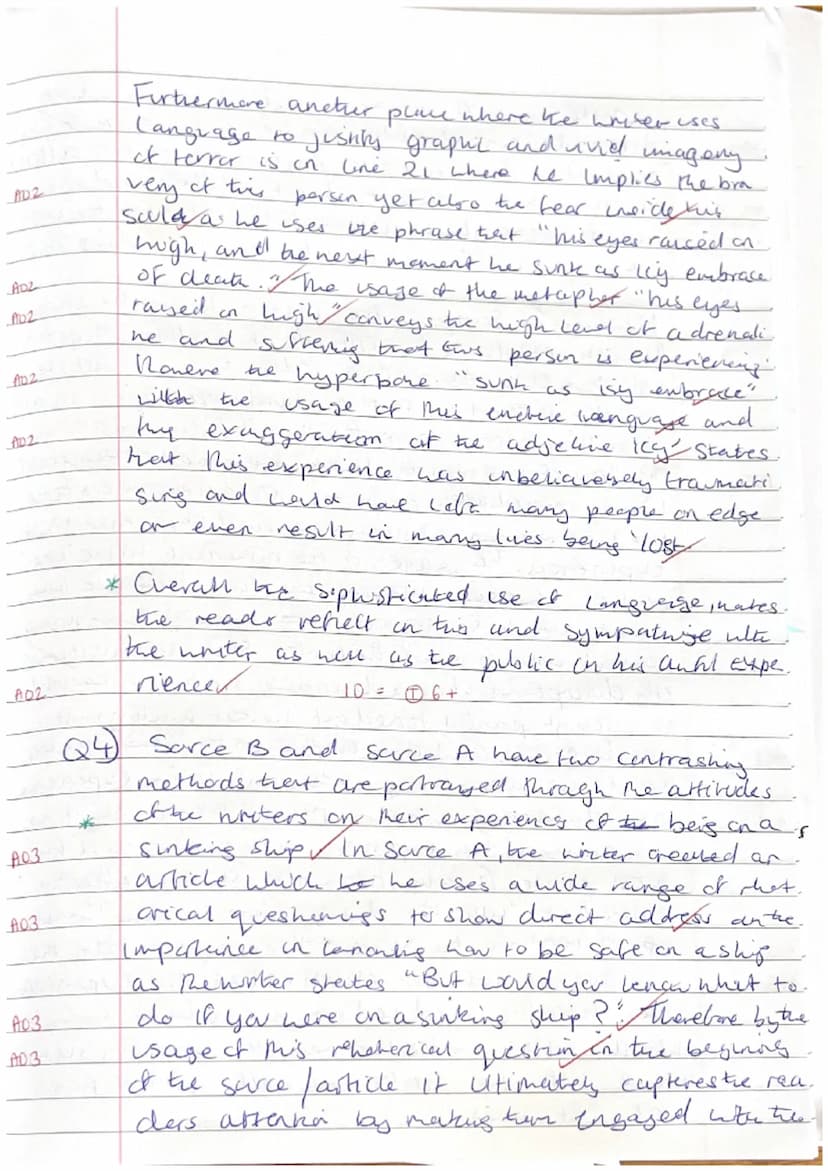 Furthermore another place where the writer uses
language to justify graphic and vivid imagery
of terror is on line 21 where he implies the bra
AO2 very of this person yet also the fear inside his
sould as he uses the phrase that "his eyes raised on
high, and the next moment he sunk as icy embrace
AO2 of death." The usage of the metaphor "his eyes
AO2 raised on high" conveys the high level of adrenali
ne and suffering that this person is experiencing.
AO2 However the hyperbole "sunk as isy embrace"
with the usage of this emotive language and
AO2 the exaggeration of the adjective 'icy' states
that this experience was unbelieavesely traumati
sing and would have left many people on edge
or even result in many lives being 'lost
* Overall the sophisticated use of language, makes
the reader reflect on this and sympathise with
the writer as well as the public on his awful expe
AO2 rience. 10 = T 6+
Q4) Sorce B and sorce A have two contrasting
methods that are portrayed through the attitudes
* of the writers on their experiences of the being on a
AO3 sinking ship. In sorce A, the writer created an
article which he uses a wide range of rhet
AO3 orical questionings to show direct address on the
importance on knowing how to be safe on a ship
as the writer states "But would you know what to
AO3 do if you were on a sinking ship?". Therefore by the
AO3 usage of this rehotorical question in the beginning
of the sorce/article it ultimately captures the rea
ders attention by making them engaged with the